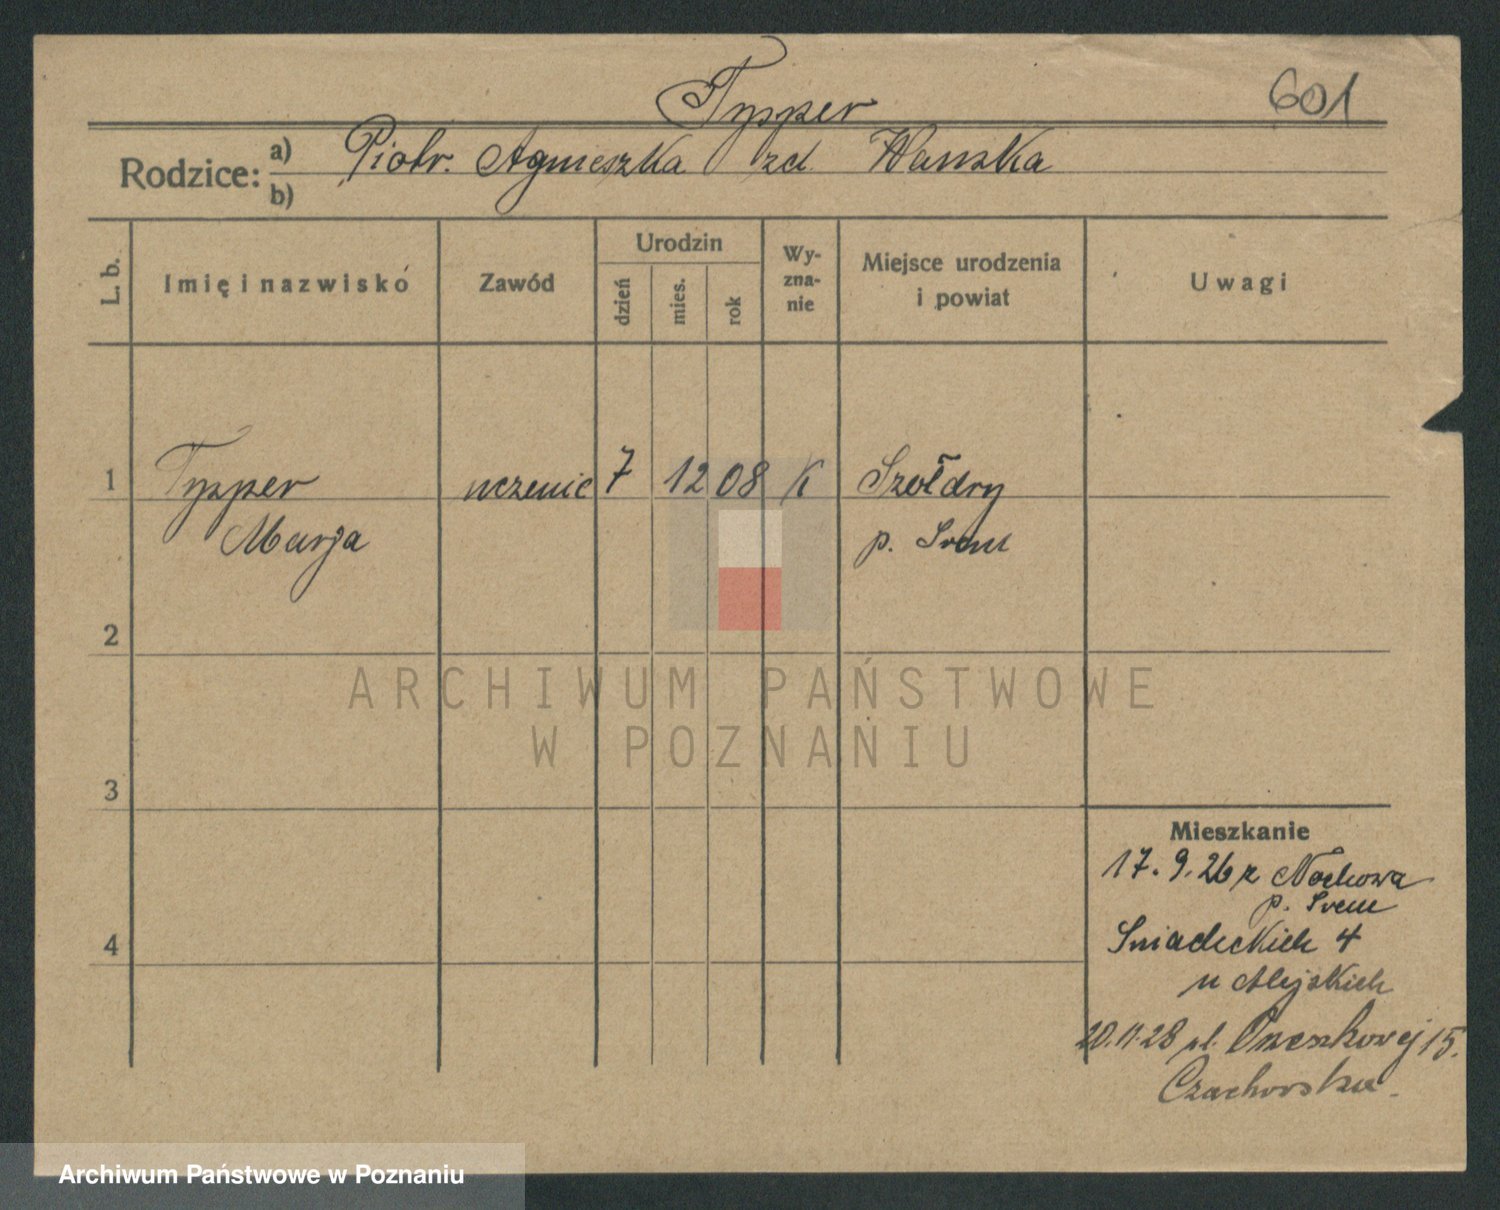 601
Typper
Rodzice: a) Piotr. Agnieszka zd. Wawska
b)
L. b. Imię i nazwisko Zawód Urodzin Wy-zna-nie Miejsce urodzenia i powiat Uwagi
dzień mies. rok
1 Typper uczenic 7 12 08 K Szołdry
Marja p. Srem
2
ARCHIWUM PAŃSTWOWE
W POZNANIU
3
Mieszkanie
17. 9. 26 z Nochowa
p. Srem
4 Sniadeckich 4
u
20.11.28 pl. 15.
Archiwum Państwowe w Poznaniu